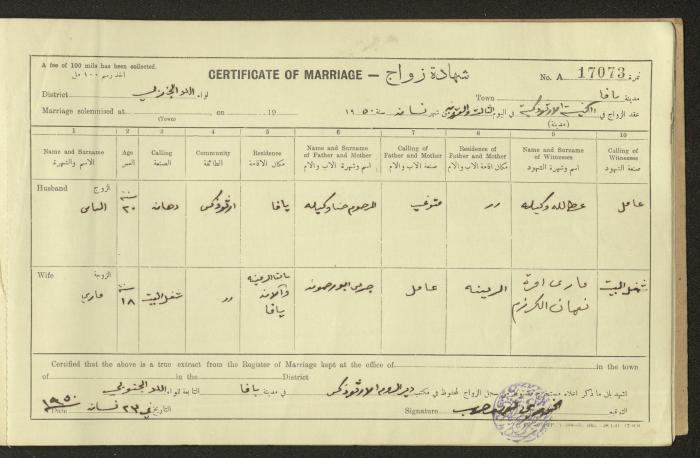 A fee of 100 mils has been collected.
اخذ رسم ١٠٠ مل
CERTIFICATE OF MARRIAGE — شهادة زواج
No. A 17073 نمرة
District لواء اللد الجنوبي
Town مدينة يافا
Marriage solemnised at , on 19
(Town)
عقد الزواج في الكنيسة الارثوذكسية في اليوم الثالث والعشرين شهر نيسان سنة ١٩٥٠
(مدينة)
1 2 3 4 5 6 7 8 9 10
Name and Surname Age Calling Community Residence Name and Surname of Father and Mother Calling of Father and Mother Residence of Father and Mother Name and Surname of Witnesses Calling of Witnesses
الاسم والشهرة العمر الصنعة الطائفة مكان الاقامة اسم وشهرة الاب والام صنعة الاب والام مكان اقامة الاب والام اسم وشهرة الشهود صنعة الشهود
Husband الزوج
الياس سنة ٢٠ دهان ارثوذكس يافا المرحوم حنا وكيله متوفي رر عطالله وكيله عامل
Wife الزوجة
ماري سنة ١٨ شغل البيت رر الرينه والآن يافا جريس عامل الرينه ماري امرة نعمان شغل البيت
Certified that the above is a true extract from the Register of Marriage kept at the office of in the town
of in the District
اشهد بان ما ذكر اعلاه مستخرج سجل الزواج المحفوظ في مكتب دير الروم الارثوذكس في مدينة يافا التابعة للواء اللد الجنوبي
Date ١٩٥٠ التاريخ في ٢٣ نيسان
Signature التوقيع